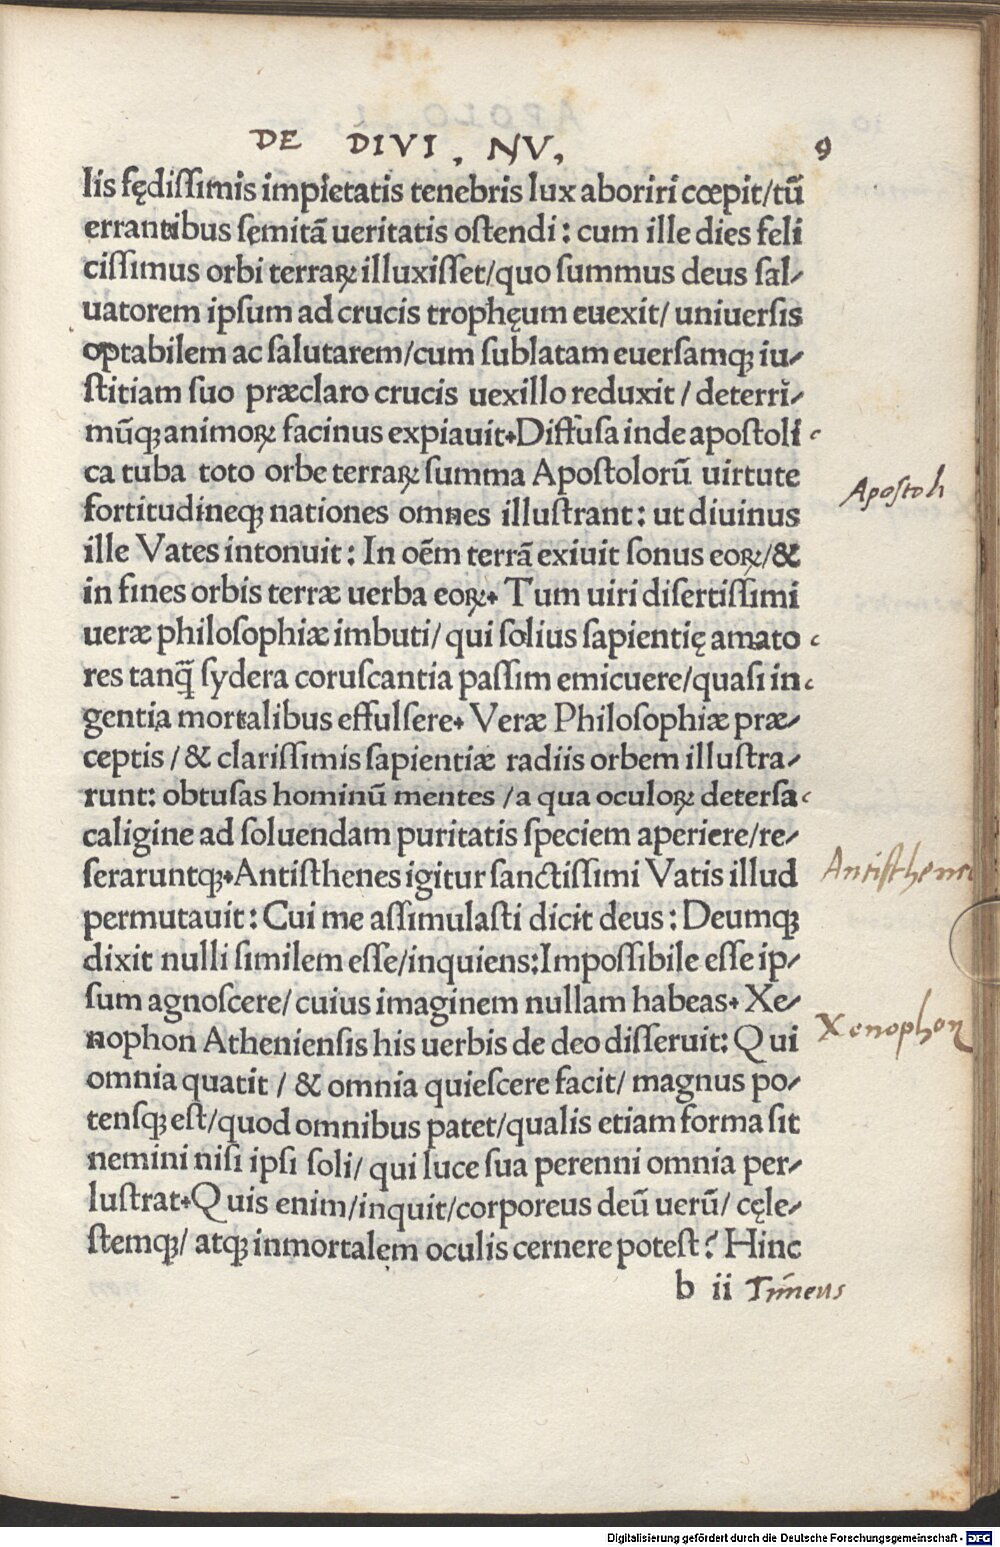 DE DIVI. NV, 9
lis fędissimis impietatis tenebris lux aboriri cœpit/tũ
errantibus semitã ueritatis ostendi: cum ille dies feli
cissimus orbi terraꝝ illuxisset/quo summus deus sal-
uatorem ipsum ad crucis trophęum euexit/ uniuersis
optabilem ac salutarem/cum sublatam euersamqꝫ iu-
stitiam suo præclaro crucis uexillo reduxit / deterri-
mũqꝫ animoꝝ facinus expiauit. Diffusa inde apostoli-
ca tuba toto orbe terraꝝ summa Apostolorũ uirtute
fortitudineqꝫ nationes omnes illustrant: ut diuinus
ille Vates intonuit: In oẽm terrã exiuit sonus eoꝝ/&
in fines orbis terræ uerba eoꝝ. Tum uiri disertissimi
ueræ philosophiæ imbuti/ qui solius sapientię amato-
res tanq̃ sydera coruscantia passim emicuere/quasi in-
gentia mortalibus effulsere. Veræ Philosophiæ præ-
ceptis / & clarissimis sapientiæ radiis orbem illustra-
runt: obtusas hominũ mentes /a qua oculoꝝ detersa-
caligine ad soluendam puritatis speciem aperiere/re-
seraruntqꝫ. Antisthenes igitur sanctissimi Vatis illud
permutauit: Cui me assimulasti dicit deus: Deumqꝫ
dixit nulli similem esse/inquiens: Impossibile esse ip-
sum agnoscere/ cuius imaginem nullam habeas. Xe-
nophon Atheniensis his uerbis de deo disseruit: Qui
omnia quatit / & omnia quiescere facit/ magnus po-
tensqꝫ est/quod omnibus patet/qualis etiam forma sit
nemini nisi ipsi soli/ qui luce sua perenni omnia per-
lustrat. Quis enim/inquit/corporeus deũ uerũ/ cęle-
stemqꝫ/ atqꝫ inmortalem oculis cernere potest? Hinc
b ii Timeus
Apostoli
Antisthenes
Xenophon
Digitalisierung gefördert durch die Deutsche Forschungsgemeinschaft - DFG